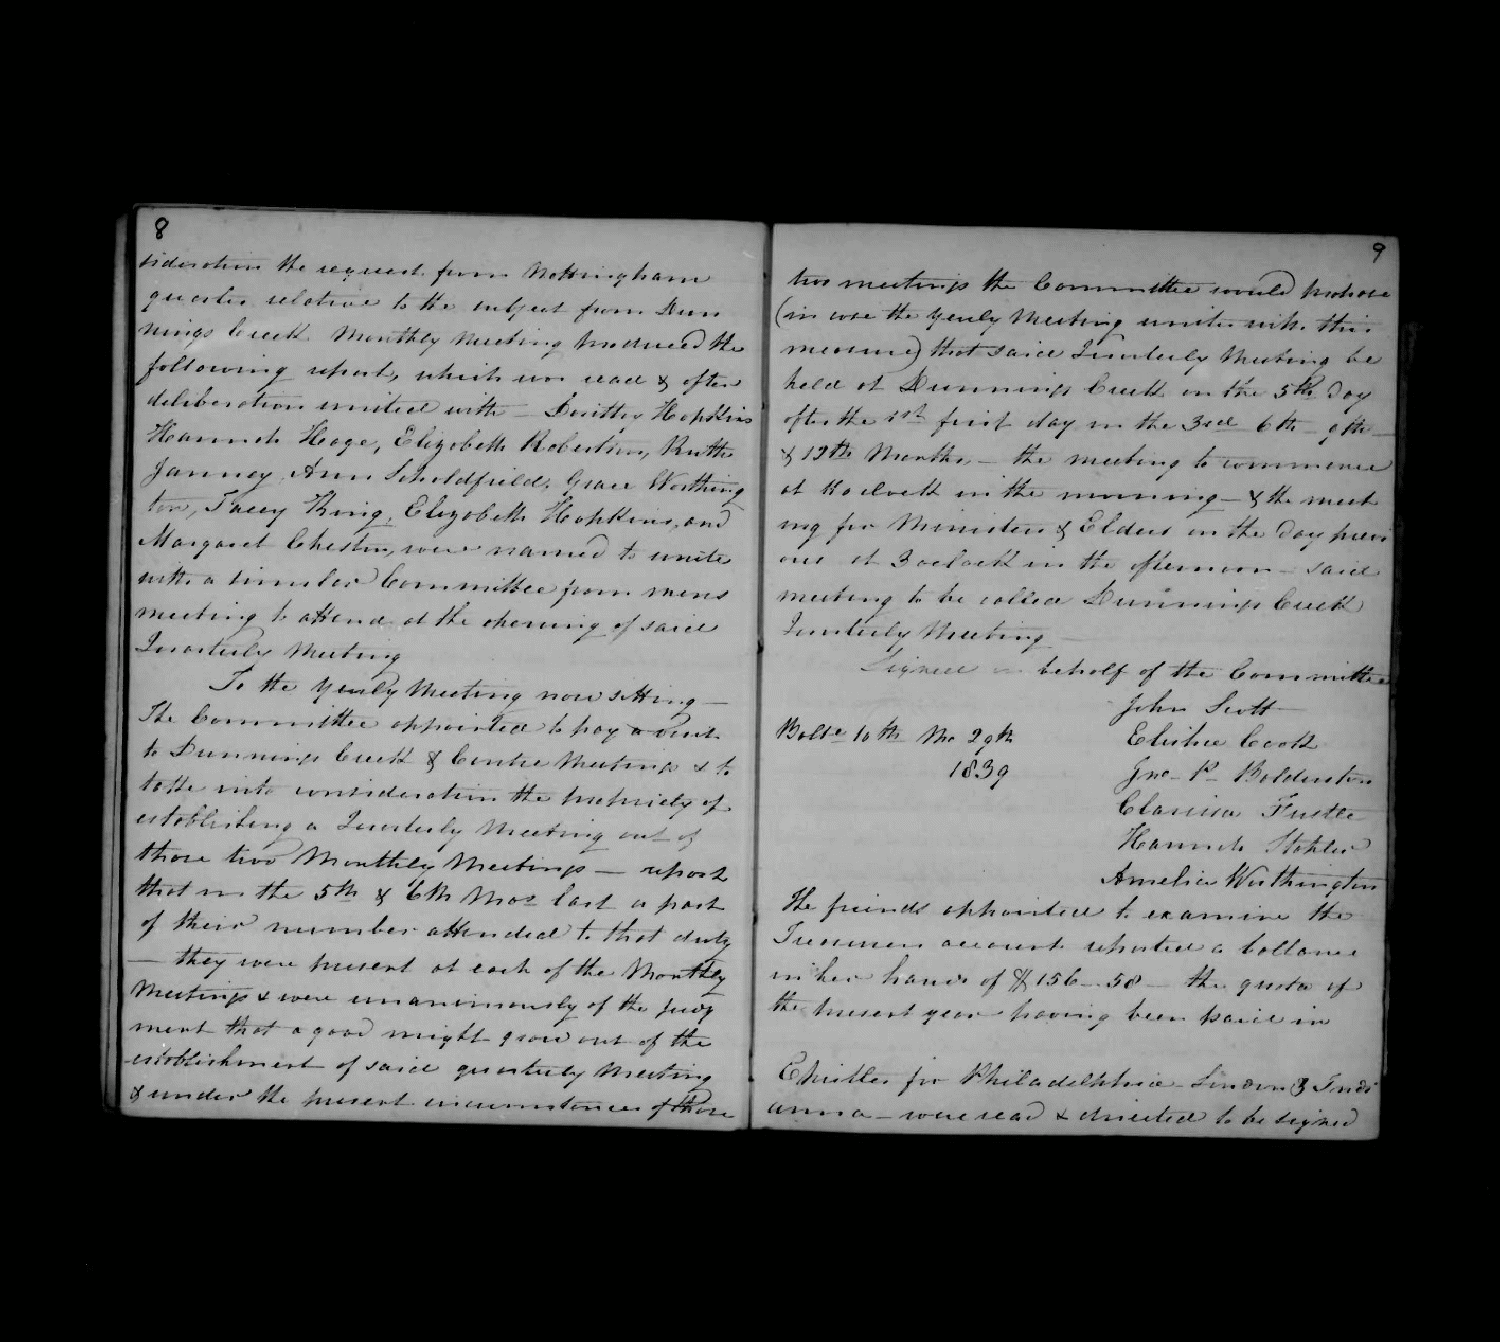 8
sideration the request from Nottingham
quarter relative to the subject from Dun
nings Creek Monthly Meeting produced the
following report, which was read & after
deliberation united with — Dorithy Hopkins
Hannah Hage, Elizabeth Robertson, Ruth
Janney Ann Scholdfield, Grace Worthing
ton, Tacey King, Elizabeth Hopkins, and
Margaret Cheston, were named to unite
with a similar Committee from mens
meeting to attend at the opening of said
Quarterly Meeting
To the Yearly Meeting now sitting —
The Committee appointed to pay a visit
to Dunnings Creek & Centre Meetings & to
take into consideration the propriety of
establishing a Quarterly Meeting out of
those two Monthly Meetings — report
that in the 5th & 6th Mos last a part
of their number attended to that duty
— they were present at each of the Monthly
Meetings & were unanimously of the judg
ment that a good might grow out of the
establishment of said quarterly meeting
& under the present circumstances of those
9
two meetings the Committee would propose
(in case the Yearly Meeting unites with this
measure) that said Quarterly Meeting be
held at Dunnings Creek on the 5th day
after the 1st first day in the 3rd 6th — 9th —
& 12th Months — the meeting to commence
at 11 oclock in the morning — & the meet
ing for Ministers & Elders on the day previ
ous at 3 oclock in the afternoon — said
meeting to be called Dunnings Creek
Quarterly Meeting —
Signed in behalf of the Committee
John Scott
Balte 10th Mo 29th
Elisha Cook
1839
Jno P Balderston
Clarissa
Hannah Stabler
Amelia Worthington
The friends appointed to examine the
Treasurers account reported a ballance
in her hands of $156—58 — the quota of
the present year having been paid in
Epistles for Philadelphia — London & Indi
anna — were read & directed to be signed